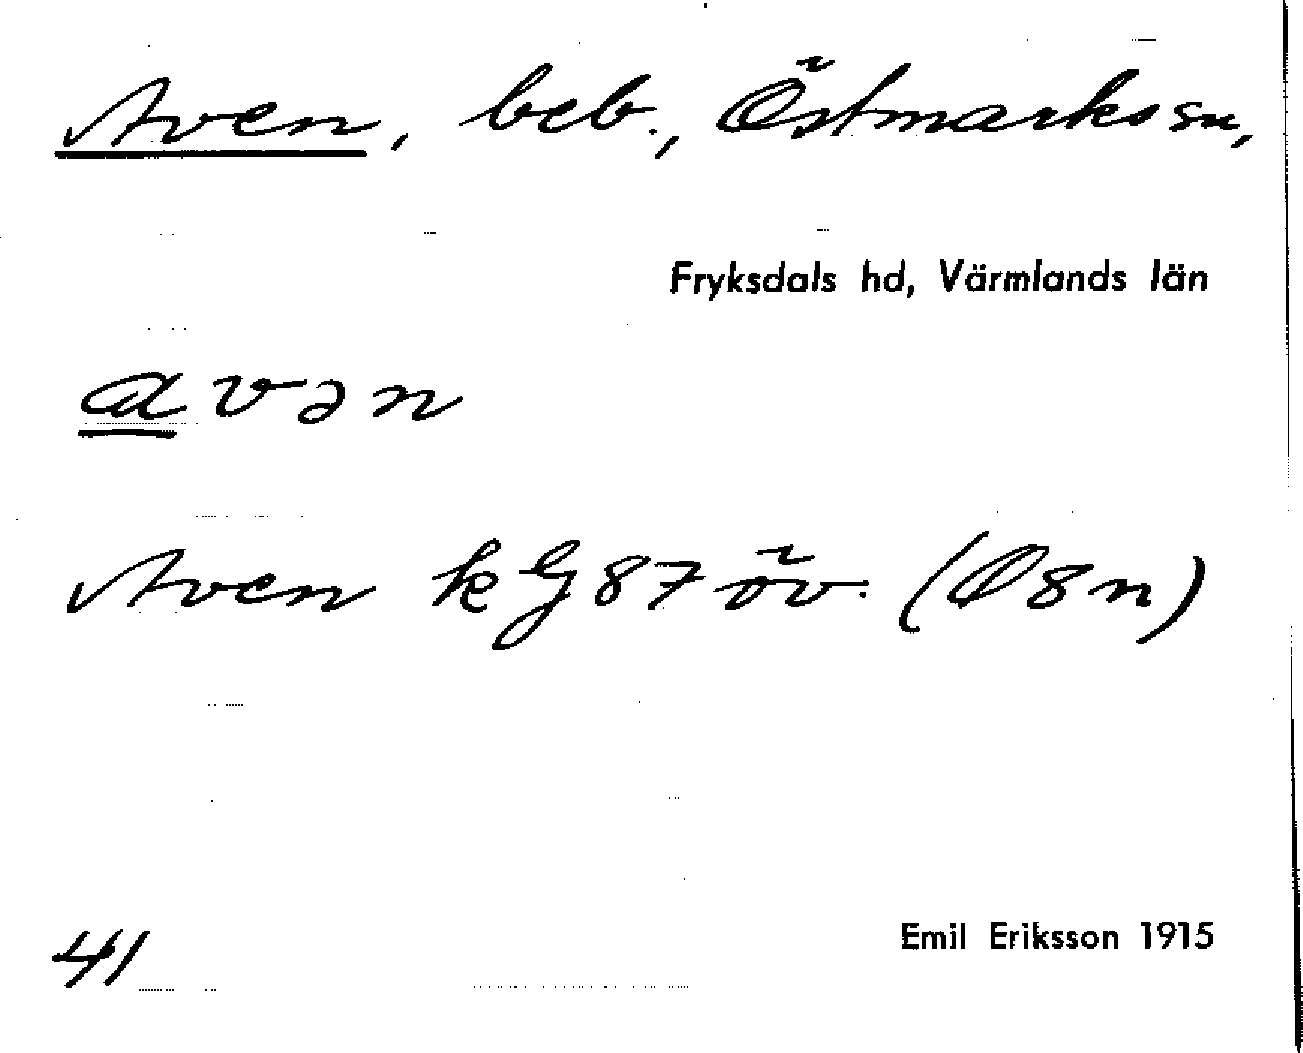 Aven, beb., Östmarks sn,
Fryksdals hd, Värmlands län
avən
Aven kG 87 öv. (Ö8n)
41 Emil Eriksson 1915